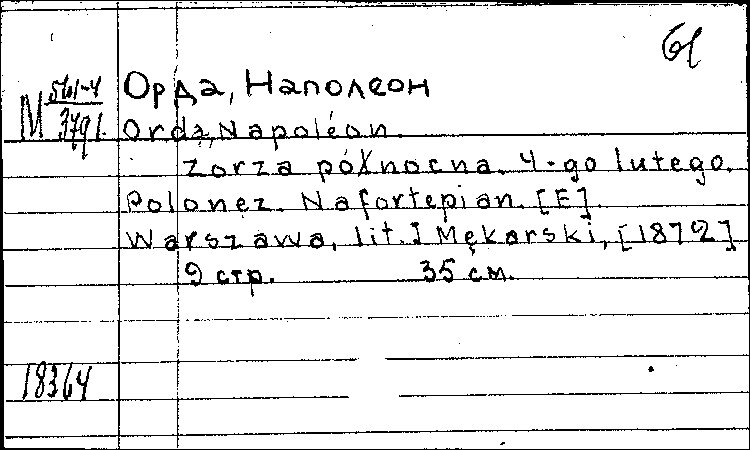 61
М 561-4/3791.
Орда, Наполеон
Orda, Napoléon.
Zorza północna. 4-go lutego.
Polonez. Na fortepian. [E].
Warszawa, lit. J Mękarski, [1872]
9 стр. 35 см.
18364